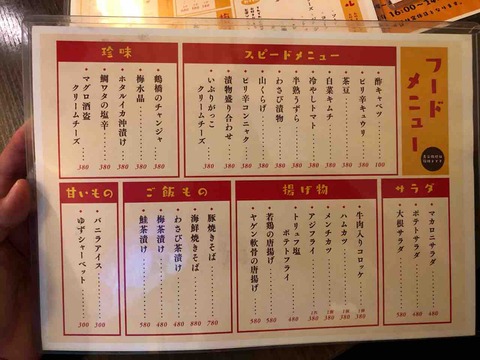 16:00~
フード
メニュー
スピードメニュー
酢キャベツ……100
ピリ辛キュウリ……380
茶豆……380
白菜キムチ……380
冷やしトマト……380
半熟うずら……380
わさび漬物……380
山くらげ……380
ピリ辛コンニャク……380
漬物盛り合わせ……380
いぶりがっこ
クリームチーズ……380
珍味
鶴橋のチャンジャ……380
梅水晶……380
ホタルイカ沖漬け……380
鯛ワタの塩辛……380
マグロ酒盗
クリームチーズ……380
サラダ
マカロニサラダ……480
ポテトサラダ……480
大根サラダ……480
揚げ物
牛肉入りコロッケ……380
ハムカツ……380
メンチカツ……380
アジフライ……380
トリュフ塩
ポテトフライ……480
若鶏の唐揚げ……580
ヤゲン軟骨の唐揚げ……580
ご飯もの
豚焼きそば……780
海鮮焼きそば……880
わさび茶漬け……480
梅茶漬け……480
鮭茶漬け……580
甘いもの
バニラアイス……300
ゆずシャーベット……300